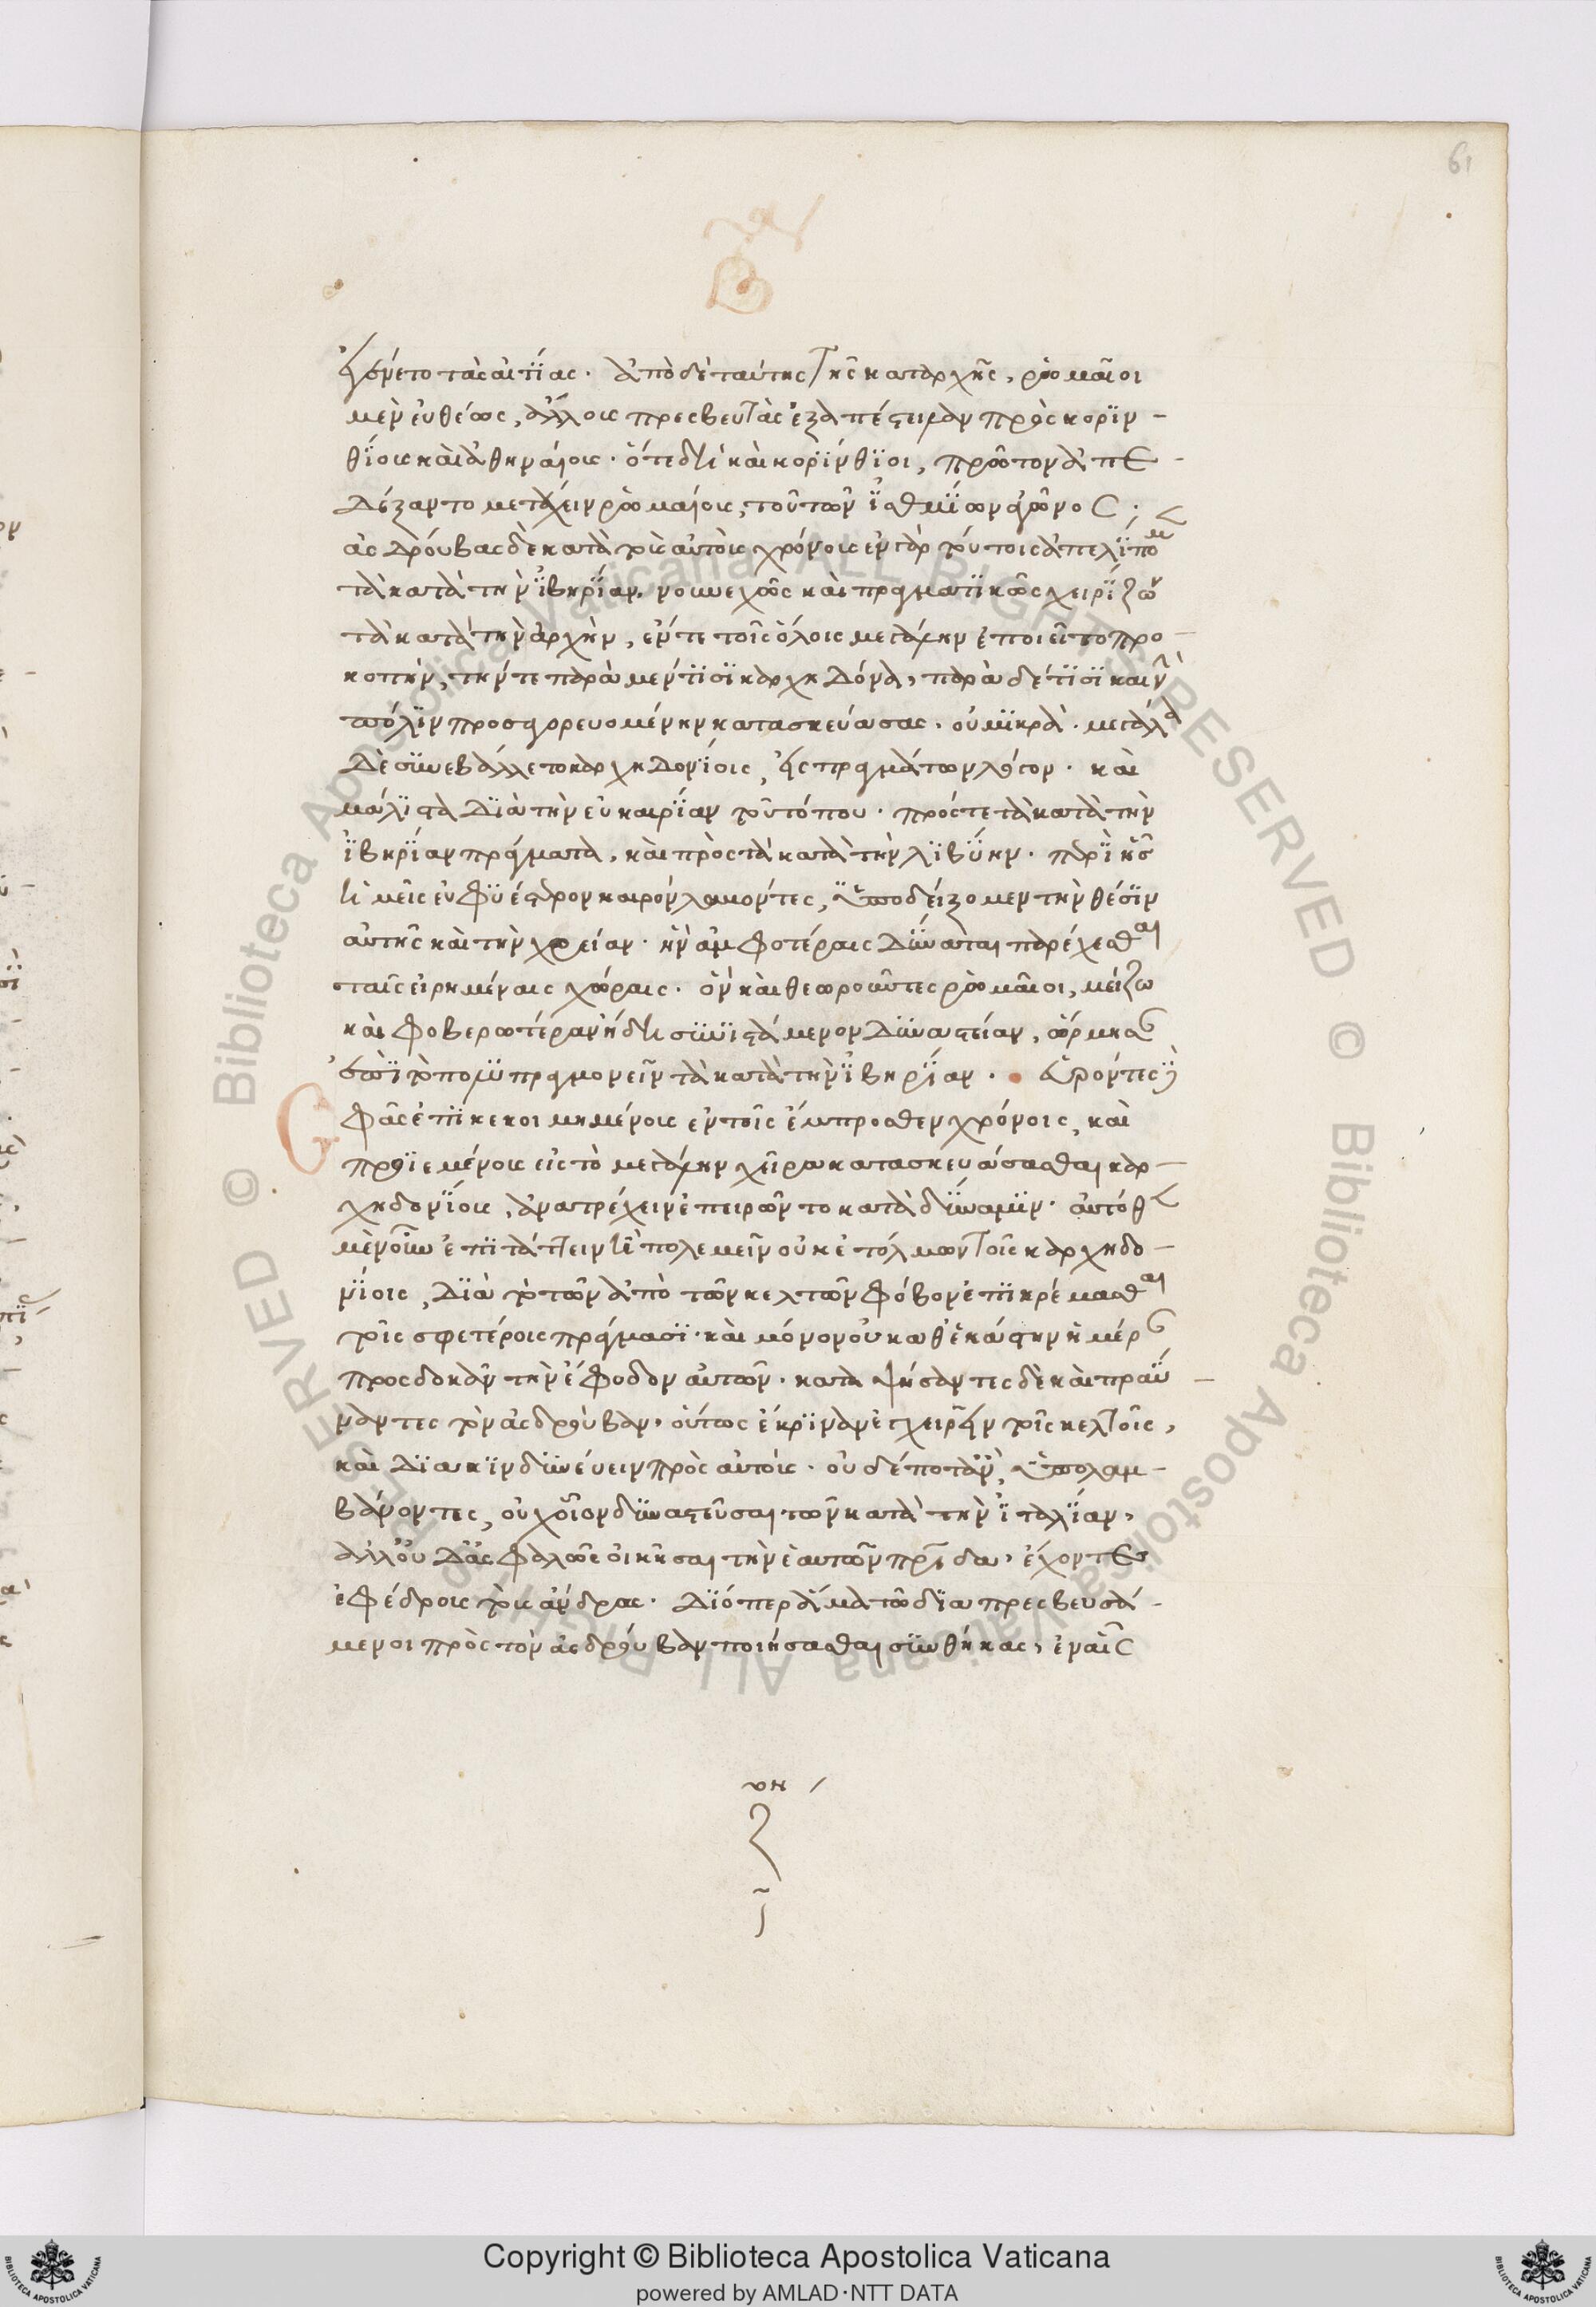 61
β
ἐγένετο τὰς αἰτίας. ἀπὸ δὲ ταύτης τῆς καταρχῆς, ῥωμαῖοι
μὲν εὐθέως, ἄλλους πρεσβευτὰς ἐξαπέστειλαν πρὸς κορϊν-
θίους καὶ ἀθηναίους. ὅτε δὴ καὶ κορϊνθϊοι, πρῶτον ἀπε
δέξαντο μετέχειν ῥωμαίους, τοῦ τῶν ἰσθμίων ἀγῶνος·
ἀσδρούβας δὲ κατὰ τοὺς αὐτοὺς χρόνους ἐν γὰρ τούτοις ἀπελίπομ
τὰ κατὰ τὴν ἰβηρίαν, νουνεχῶς καὶ πραγματικῶς χειρίζων
τὰ κατὰ τὴν ἀρχὴν, ἔν τε τοῖς ὅλοις μεγάλην ἐποιεῖτο προ-
κοπὴν, τήν τε παρὰ μέν τισι καρχηδόνα, παρὰ δέ τισι καινὴν
πόλιν προσαγορευομένην κατασκευάσας. οὐ μικρὰ. μεγάλα
δὲ συνεβάλλετο καρχηδονίοις, εἰς πραγμάτων λόγον. καὶ
μάλιστα διὰ τὴν εὐκαιρίαν τοῦ τόπου. πρός τε τὰ κατὰ τὴν
ἰβηρίαν πράγματα, καὶ πρὸς τὰ κατὰ τὴν λιβύην. περὶ ἧς
ἡμεῖς εὐφυέστερον καιρὸν λαβόντες, ὑποδείξομεν τὴν θέσιν
αὐτῆς καὶ τὴν χρείαν. ἣν ἀμφοτέραις δύναται παρέχεσθαι
ταῖς εἰρημέναις χώραις. ὃν καὶ θεωροῦντες ῥωμαῖοι, μείζω
καὶ φοβερωτέραν ἤδη συνιστάμενον δυναστείαν, ὥρμησαν
ἐπὶ τὸ πολυπραγμονεῖν τὰ κατὰ τὴν ἰβηρίαν. εὑρόντες δὲ
σφᾶς ἐπικεκοιμημένους ἐν τοῖς ἔμπροσθεν χρόνοις, καὶ
προϊεμένους εἰς τὸ μεγάλην χεῖρα κατασκευάσασθαι καρ-
χηδονίους, ἀνατρέχειν ἐπειρῶντο κατὰ δύναμιν. αὐτόθεν
μὲν οὖν ἐπιτάττειν ἢ πολεμεῖν οὐκ ἐτόλμων τοῖς καρχηδο-
νίοις, διὰ τὸ τῶν ἀπὸ τῶν κελτῶν φόβον ἐπικρέμασθαι
τοῖς σφετέροις πράγμασι. καὶ μόνον οὐ καθ' ἑκάστην ἡμέραν
προσδοκᾶν τὴν ἔφοδον αὐτῶν. καταψήσαντες δὲ καὶ πραΰ-
ναντες τὸν ἀσδρούβαν, οὕτως ἔκριναν ἐγχειρεῖν τοῖς κελτοῖς,
καὶ διακινδυνεύειν πρὸς αὐτούς. οὐδέποτ' ἂν ὑπολαμ-
βάνοντες, οὐχ οἷον δυναστεῦσαι τῶν κατὰ τὴν ἰταλίαν,
ἀλλ' οὐδ' ἀσφαλῶς οἰκῆσαι τὴν ἑαυτῶν πρίδα, ἔχοντες
ἐφέδρους τοὺς ἄνδρας. διόπερ ἅμα τῷ διαπρεσβευσά-
μενοι πρὸς τὸν ἀσδρούβαν ποιήσασθαι συνθήκας, ἐν αἷς